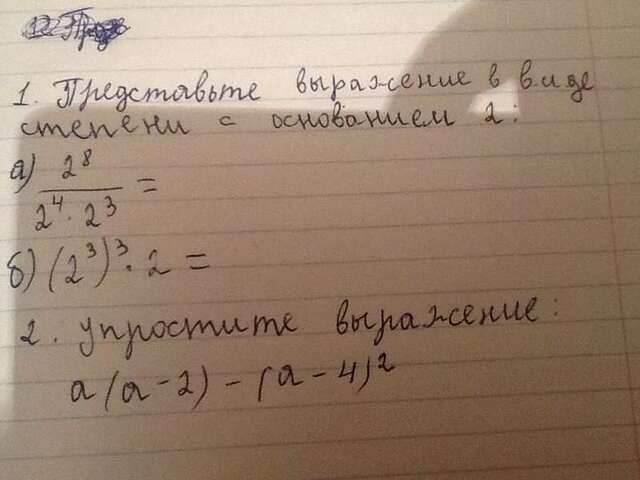 1. Представьте выражение в виде
степени с основанием 2:
а) 2⁸
2⁴ · 2³ =
б) (2³)³ · 2 =
2. Упростите выражение:
а(а - 2) - (а - 4)²